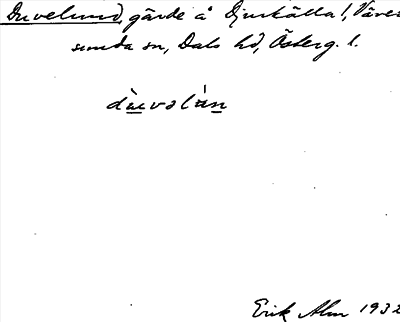 Duvelund, gärde å Djurkälla 1, Väver
sunda sn, Dals hd, Österg. l.
dùvəlún
Erik Alm 1932